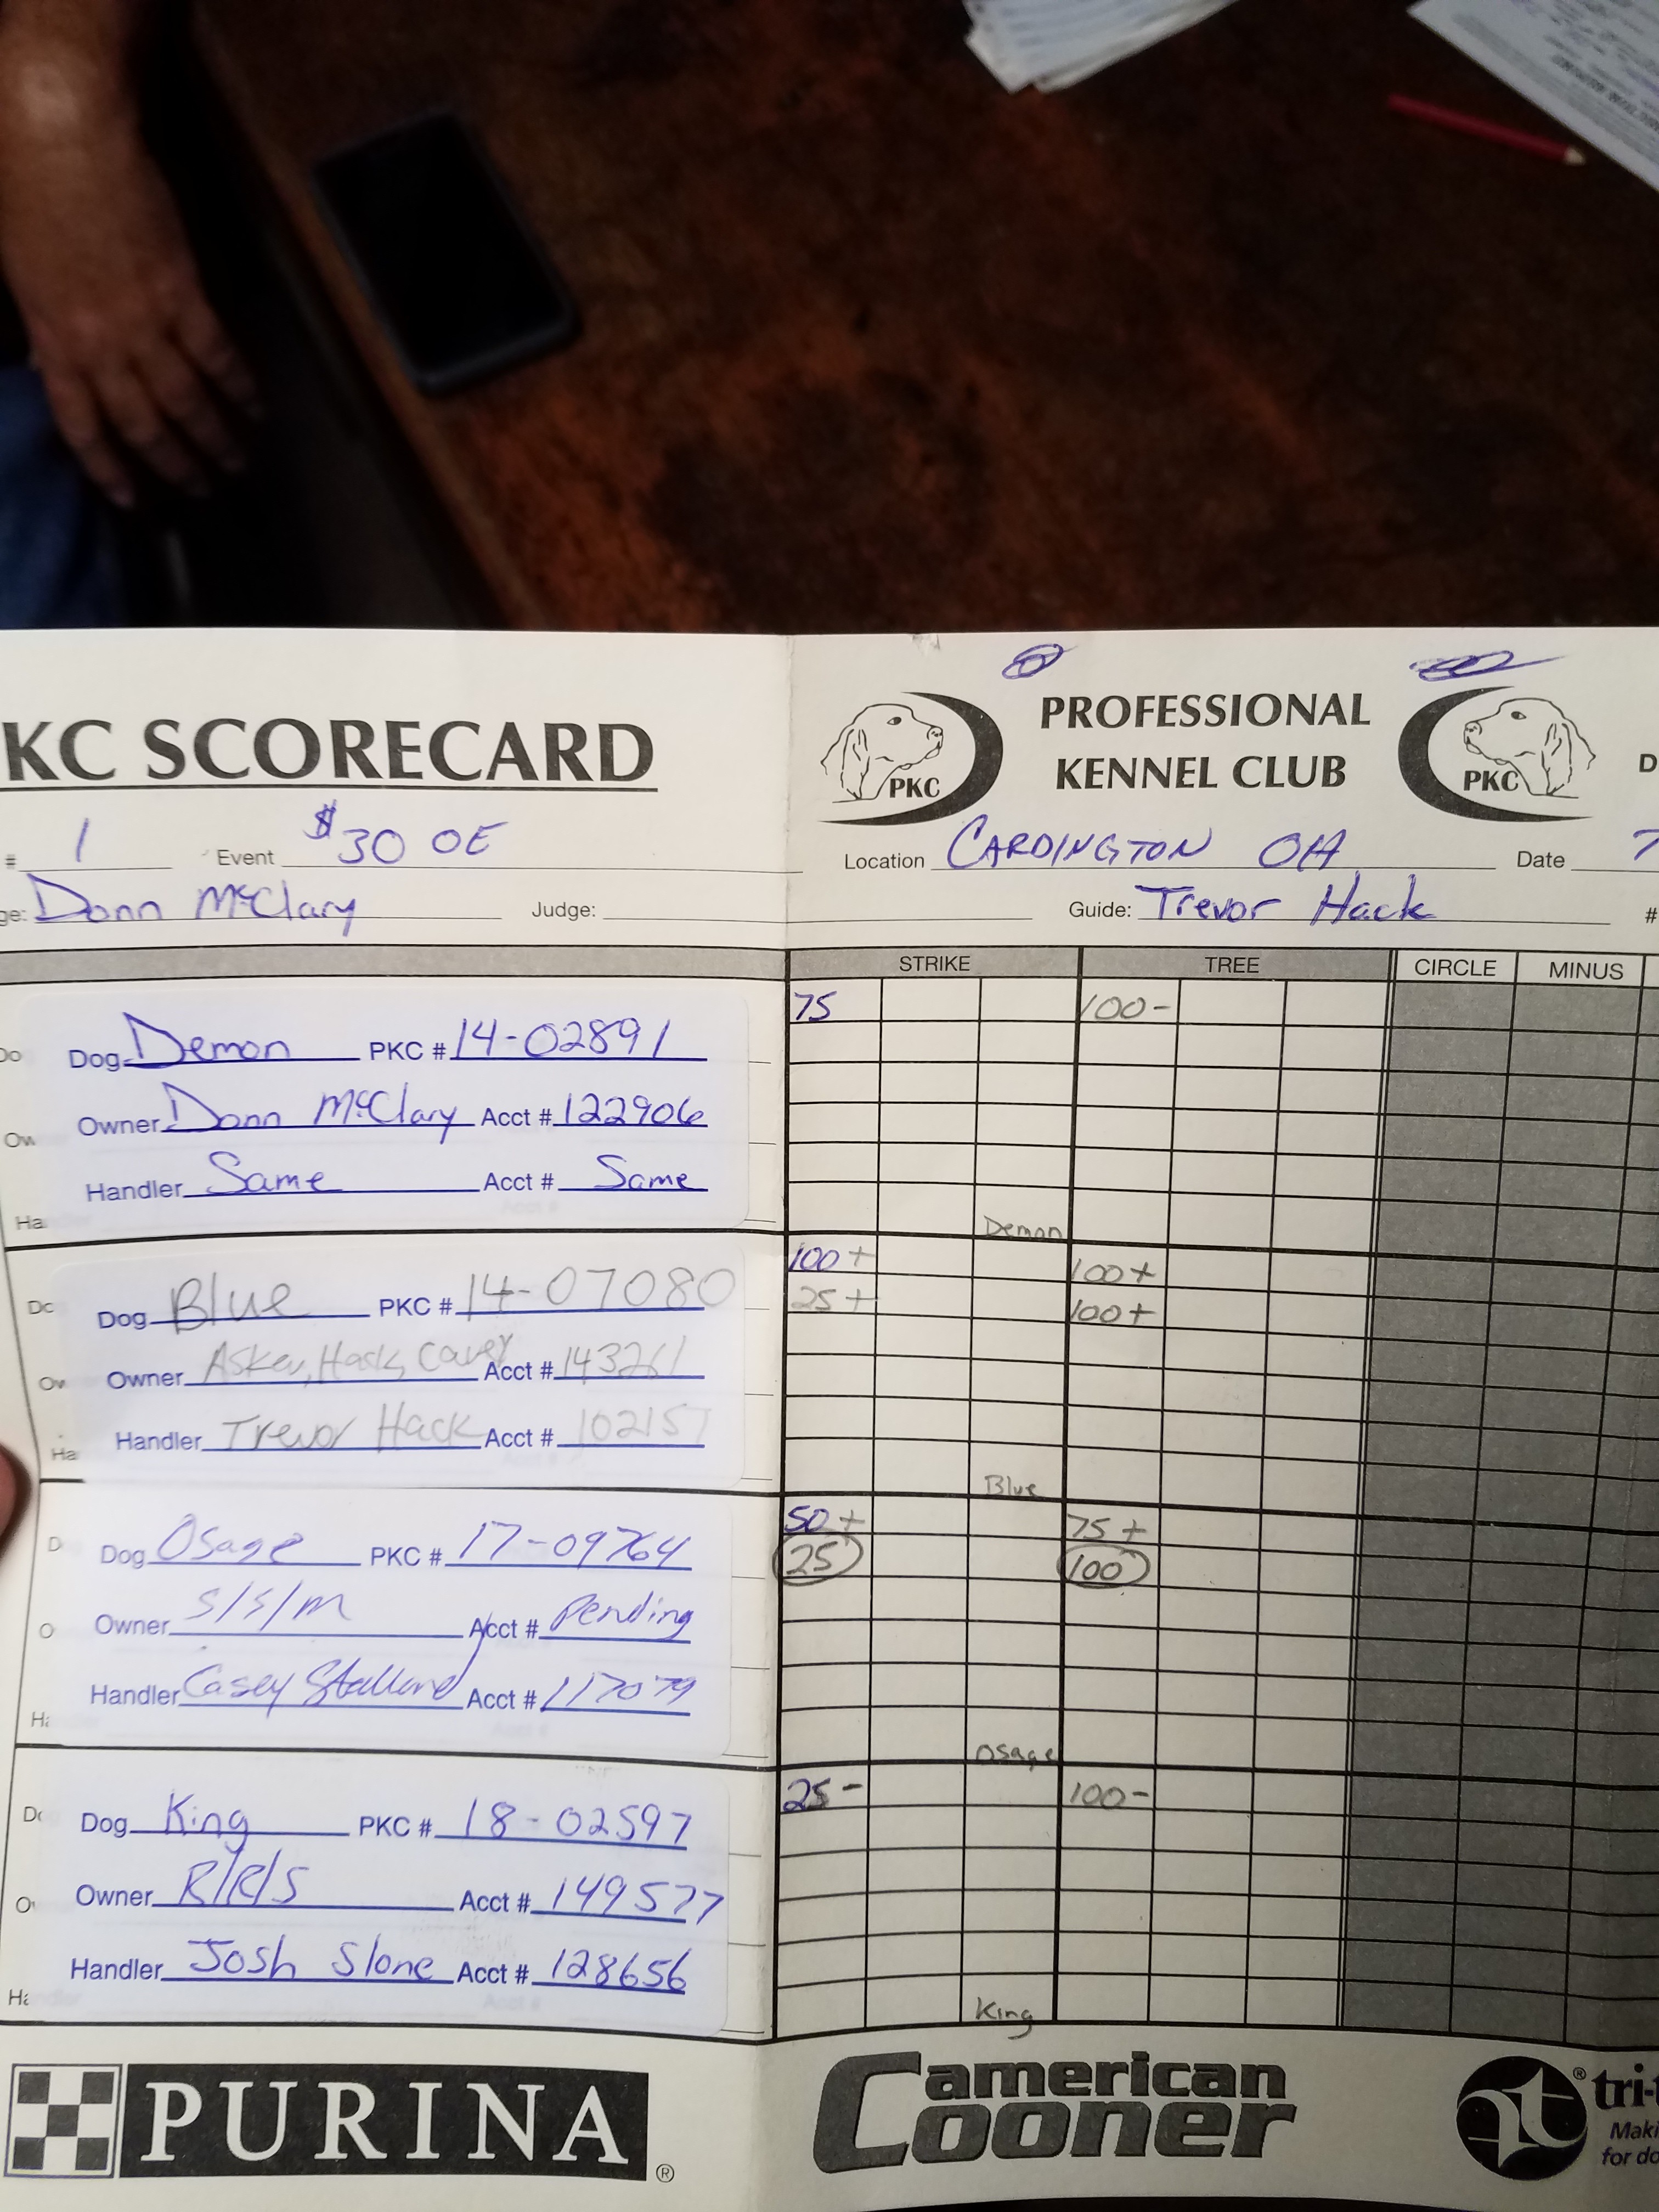 KC SCORECARD
PROFESSIONAL
KENNEL CLUB
PKC
PKC
D
# 1 Event $30 OE
Location CARDINGTON OH Date 7
ge: Donn McClary Judge:
Guide: Trevor Hack #
STRIKE TREE CIRCLE MINUS
Dog Demon PKC # 14-02891
75 100-
Owner Donn McClary Acct # 122906
Handler Same Acct # Same
Demon
Dog Blue PKC # 14-07080
100+ 100+
25+ 100+
Owner Hack, Acct # 143261
Handler Trevor Hack Acct # 102157
Blue
Dog Osage PKC # 17-09764
50+ 75+
25 100
Owner S/S/M Acct # Pending
Handler Casey Acct # 117079
Osage
Dog King PKC # 18-02597
25- 100-
Owner R/R/S Acct # 149577
Handler Josh Slone Acct # 128656
King
PURINA®
american
Cooner
® tri-t
Maki
for do